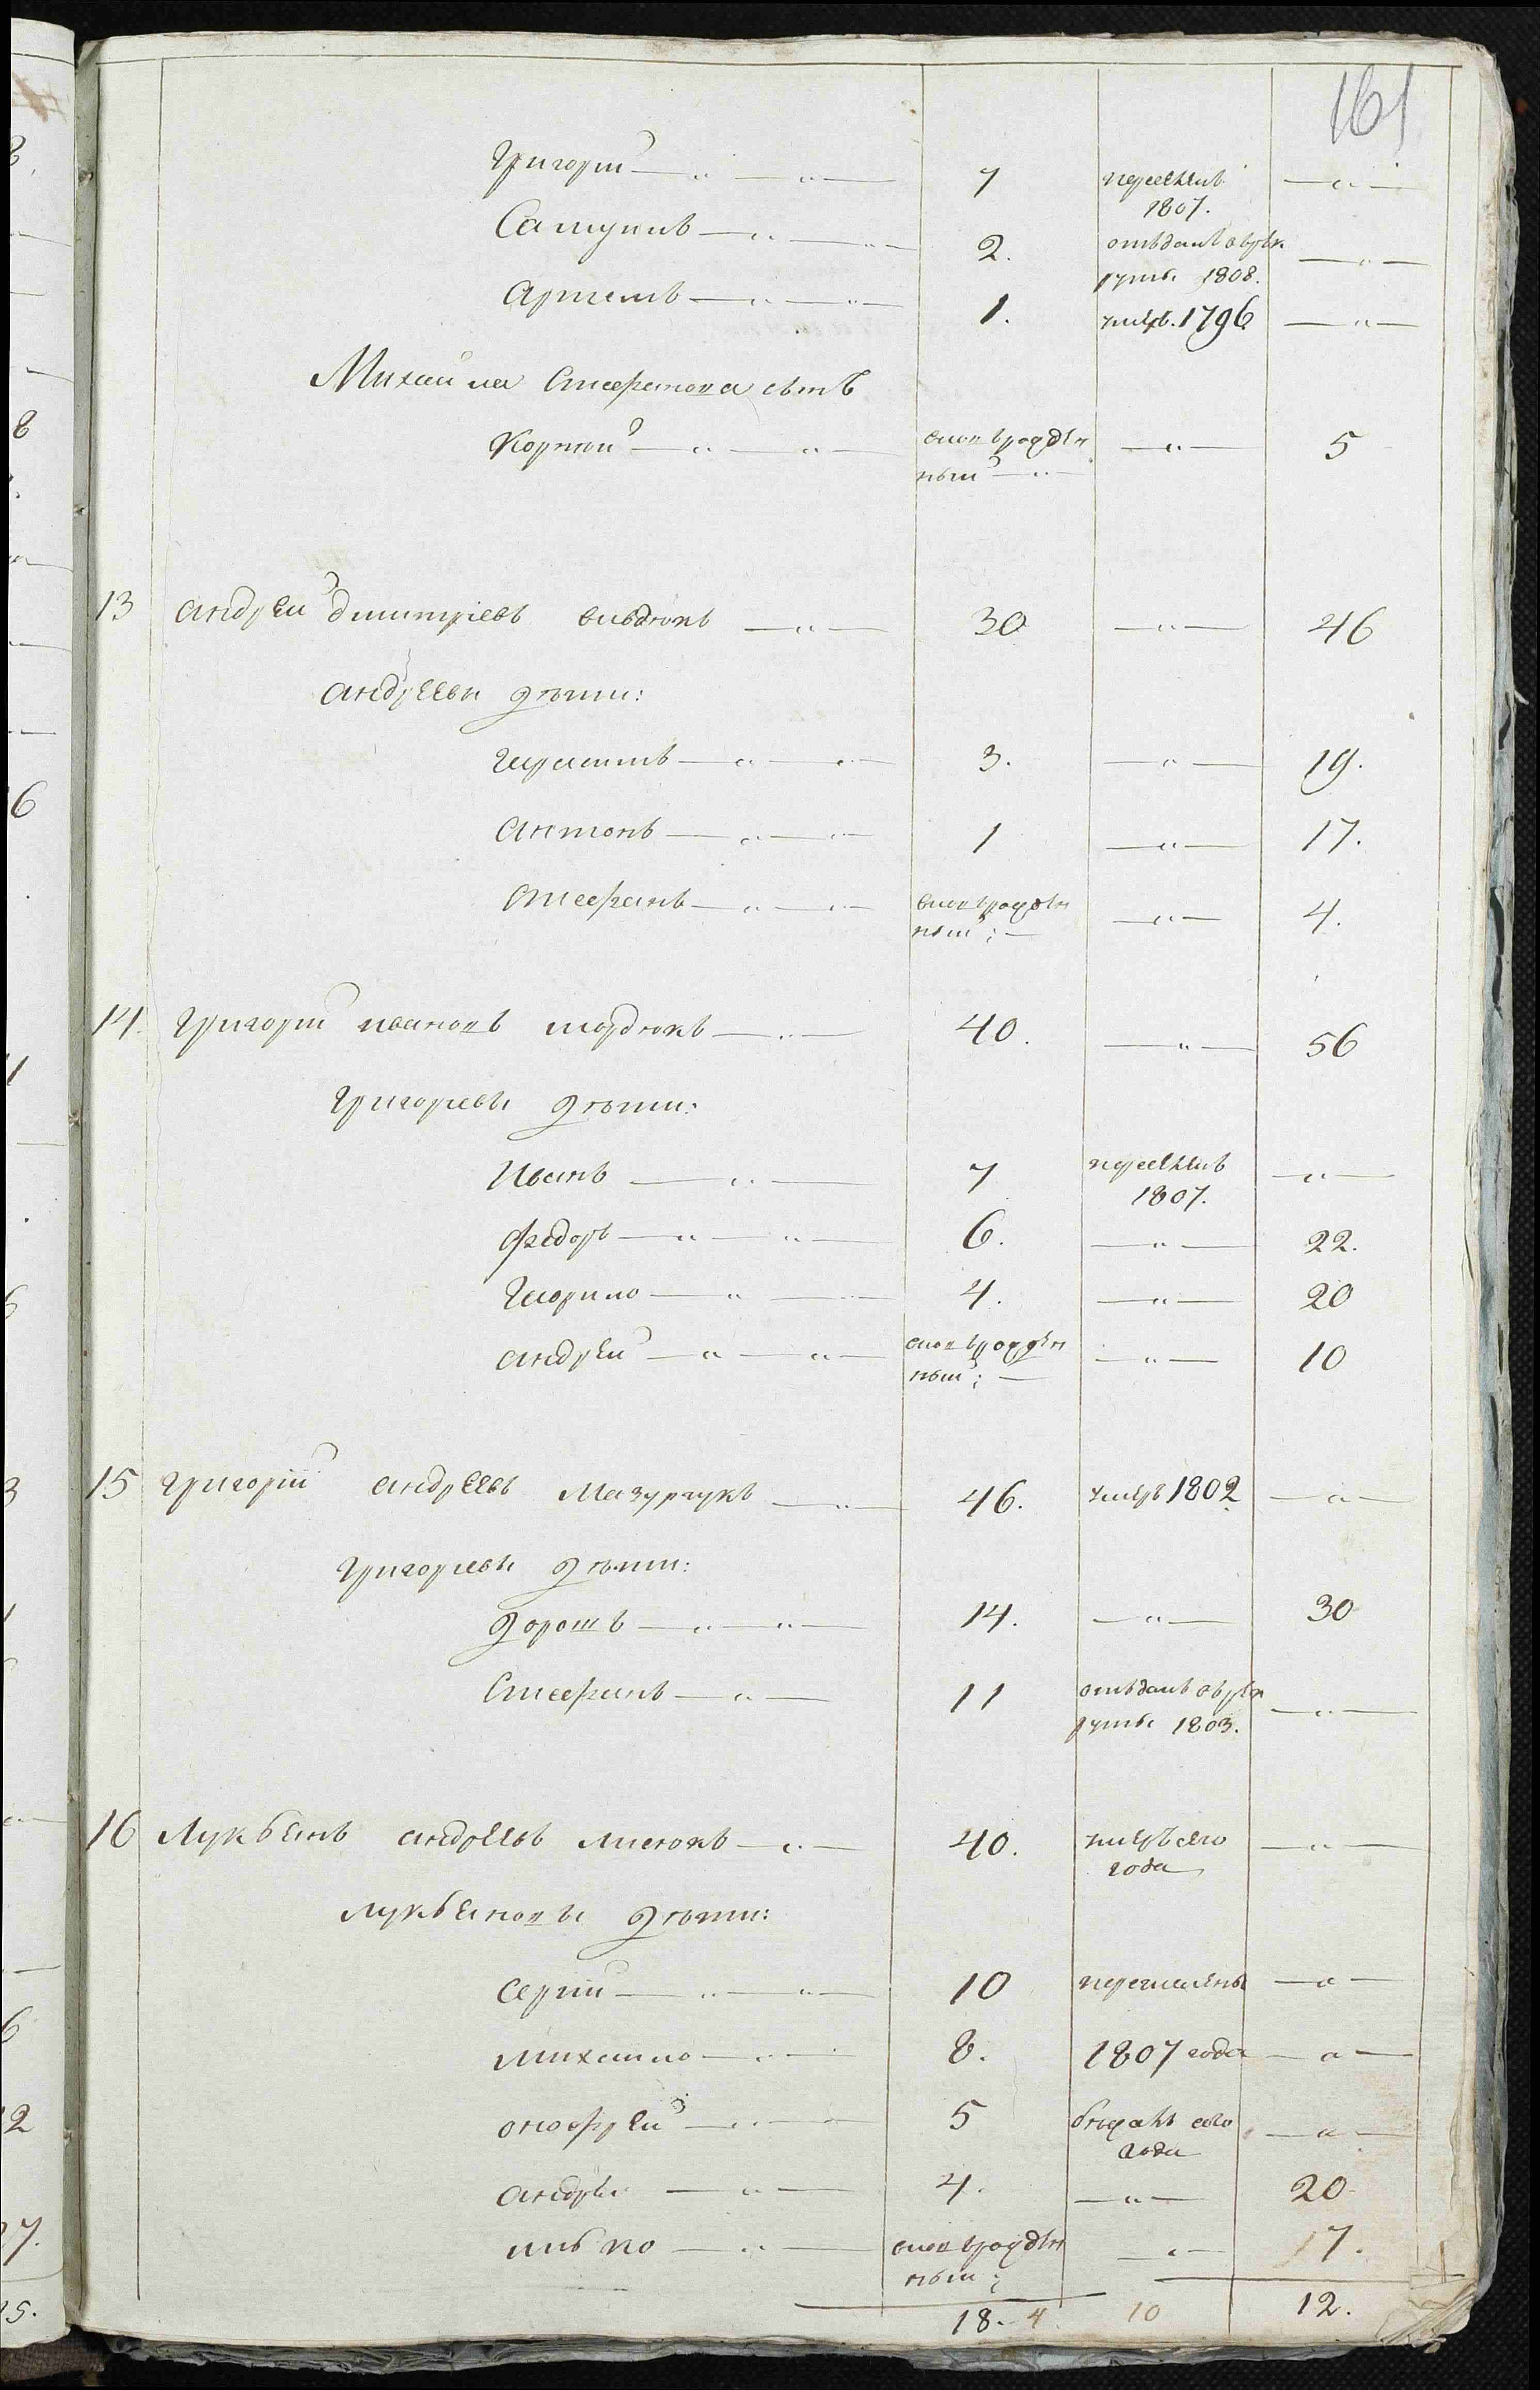 161
Григорій — 7 переселив 1807. —
2. отъданъ врек
рути 1808. —
Артемъ — 1. умеръ. 1796 —
Михаила Стефанова сынъ
Корній — вновьрожден 5
ный —
13 Андрей Дмитріевъ — 30 — 46
Андреевы дѣти:
Герасимъ — 3. — 19.
Антонъ — 1 — 17.
Стефанъ — вновьрожден — 4.
ный; —
14. Григорій Ивановъ Мордюкъ — 40. — 56
Григорьевы дѣти:
Иванъ — 7 переселив 1807. —
Федоръ — 6. — 22.
Гаврило — 4. — 20
Андрей — вновьрожден — 10
ный; —
15 Григорій Андреевъ Мазурчукъ — 46. умеръ 1802 —
Григорьевы дѣти:
Дорошъ — 14. — 30
Стефанъ — 11 отъданъ врек
рути 1803. —
16 Лукъянъ Андреевъ — 40. умеръ сего
года —
Лукъяновы дѣти:
Сергій — 10 —
Михайло — 8. 1807 года —
Онофрей — 5 сего
года —
Андрей — 4. — 20
вновьрожден — 17.
ный;
18. 4 10 12.